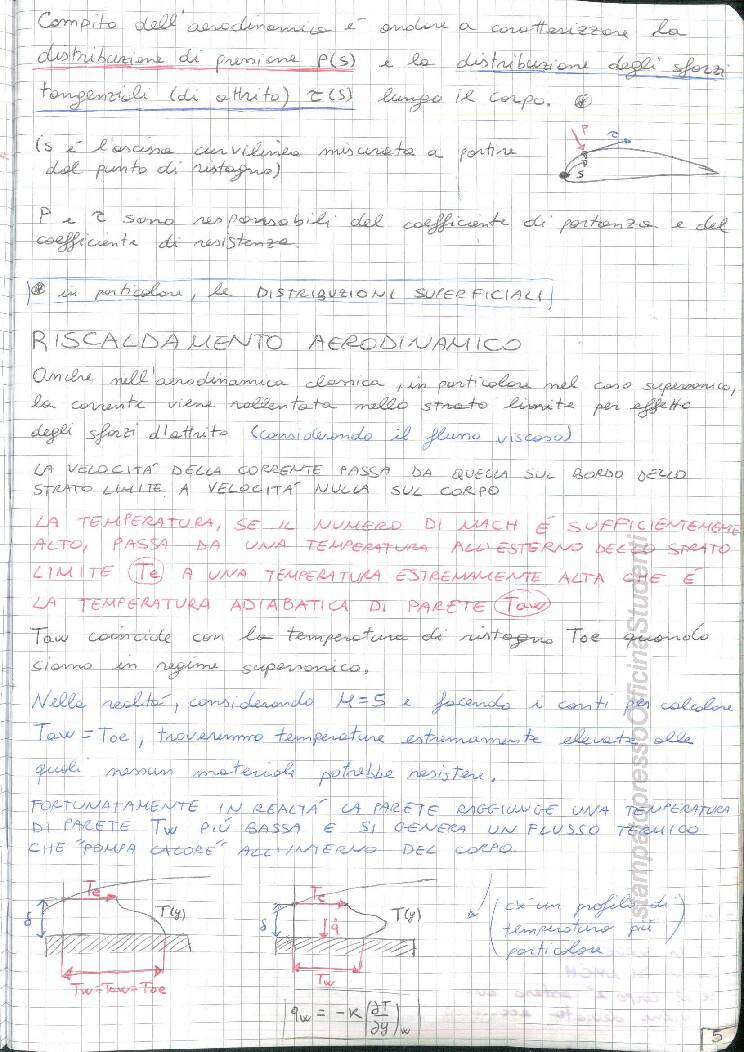 Compito dell'aerodinamica è andare a caratterizzare la
distribuzione di pressione P(s) e la distribuzione degli sforzi
tangenziali (di attrito) τ(s) lungo il corpo. *
(s è l'ascissa curvilinea misurata a partire
dal punto di ristagno)
P τ
s
P e τ sono responsabili del coefficiente di portanza e del
coefficiente di resistenza.
* in particolare, le DISTRIBUZIONI SUPERFICIALI
RISCALDAMENTO AERODINAMICO
Anche nell'aerodinamica classica, in particolare nel caso supersonico,
la corrente viene rallentata nello strato limite per effetto
degli sforzi d'attrito (considerando il flusso viscoso)
LA VELOCITÀ DELLA CORRENTE PASSA DA QUELLA SUL BORDO DELLO
STRATO LIMITE A VELOCITÀ NULLA SUL CORPO
LA TEMPERATURA, SE IL NUMERO DI MACH È SUFFICIENTEMENTE
ALTO, PASSA DA UNA TEMPERATURA ALL'ESTERNO DELLO STRATO
LIMITE Te A UNA TEMPERATURA ESTREMAMENTE ALTA CHE È
LA TEMPERATURA ADIABATICA DI PARETE Taw
Taw coincide con la temperatura di ristagno Toe quando
siamo in regime supersonico.
Nella realtà, considerando M=5 e facendo i conti per calcolare
Taw=Toe, troveremmo temperature estremamente elevate alle
quali nessun materiale potrebbe resistere.
FORTUNATAMENTE IN REALTÀ LA PARETE RAGGIUNGE UNA TEMPERATURA
DI PARETE Tw PIÙ BASSA E SI GENERA UN FLUSSO TERMICO
CHE "POMPA CALORE" ALL'INTERNO DEL CORPO
Te
δ T(y)
Tw=Taw=Toe
Te
δ q̇ T(y)
Tw
(c'è un profilo di
temperatura più
particolare)
q̇w = -K (∂T/∂y)w
5
stampa presso OfficinaStudenti